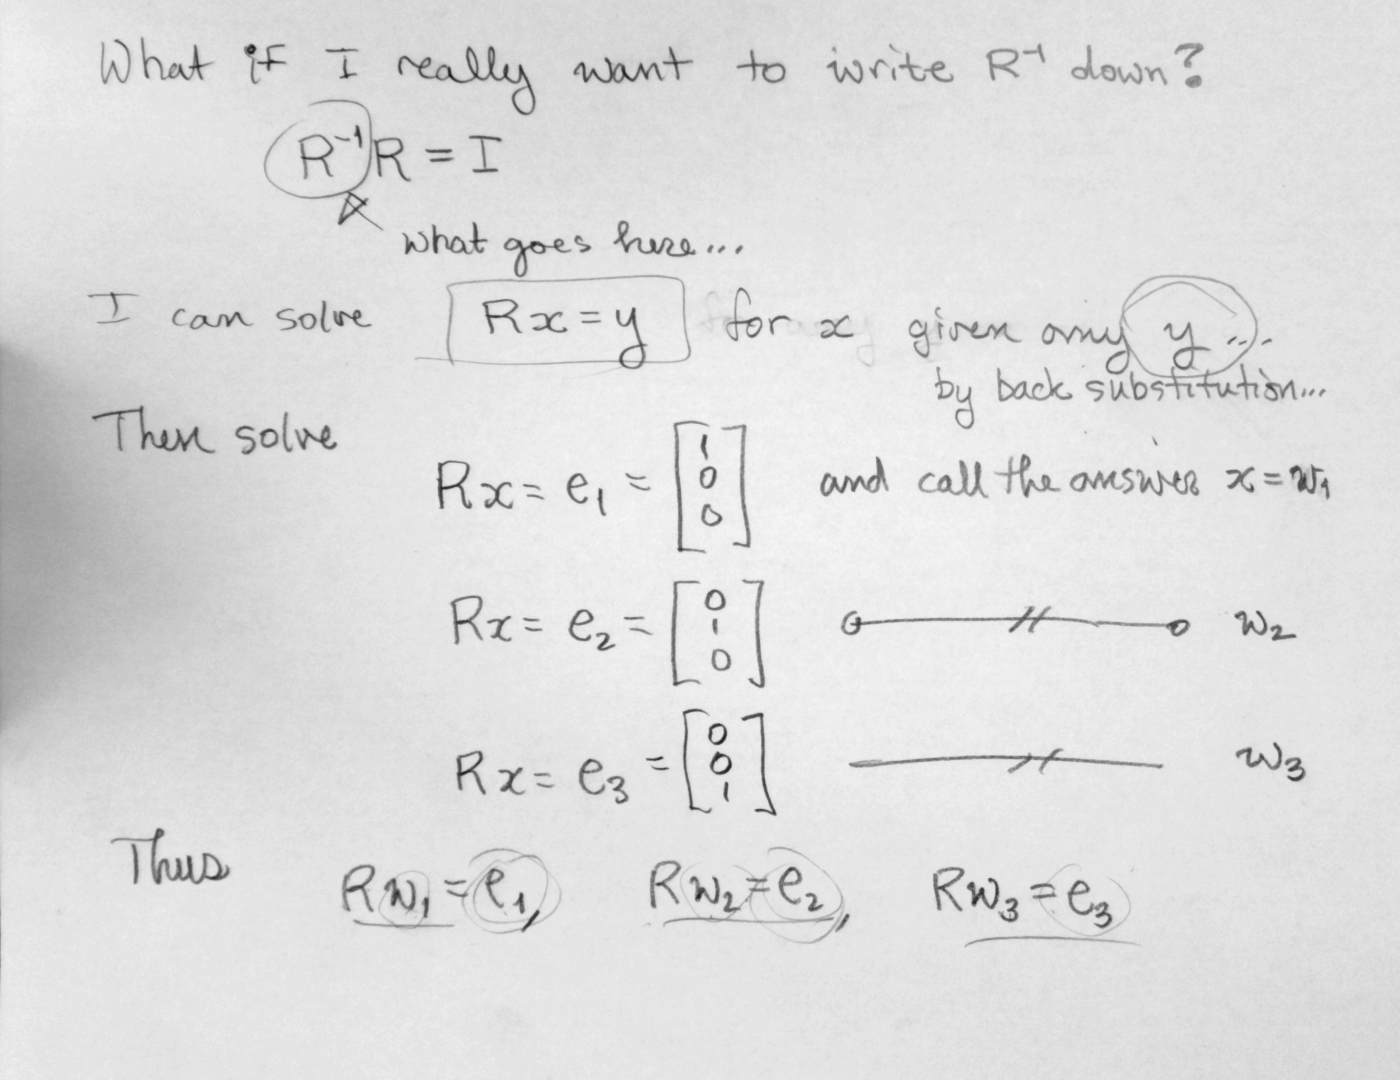 What if I really want to write R⁻¹ down?
R⁻¹R = I
what goes here...
I can solve Rx = y for x given any y...
by back substitution...
Then solve
Rx = e₁ = [1 0 0] and call the answer x = w₁
Rx = e₂ = [0 1 0] —//— w₂
Rx = e₃ = [0 0 1] —//— w₃
Thus Rw₁ = e₁, Rw₂ = e₂, Rw₃ = e₃